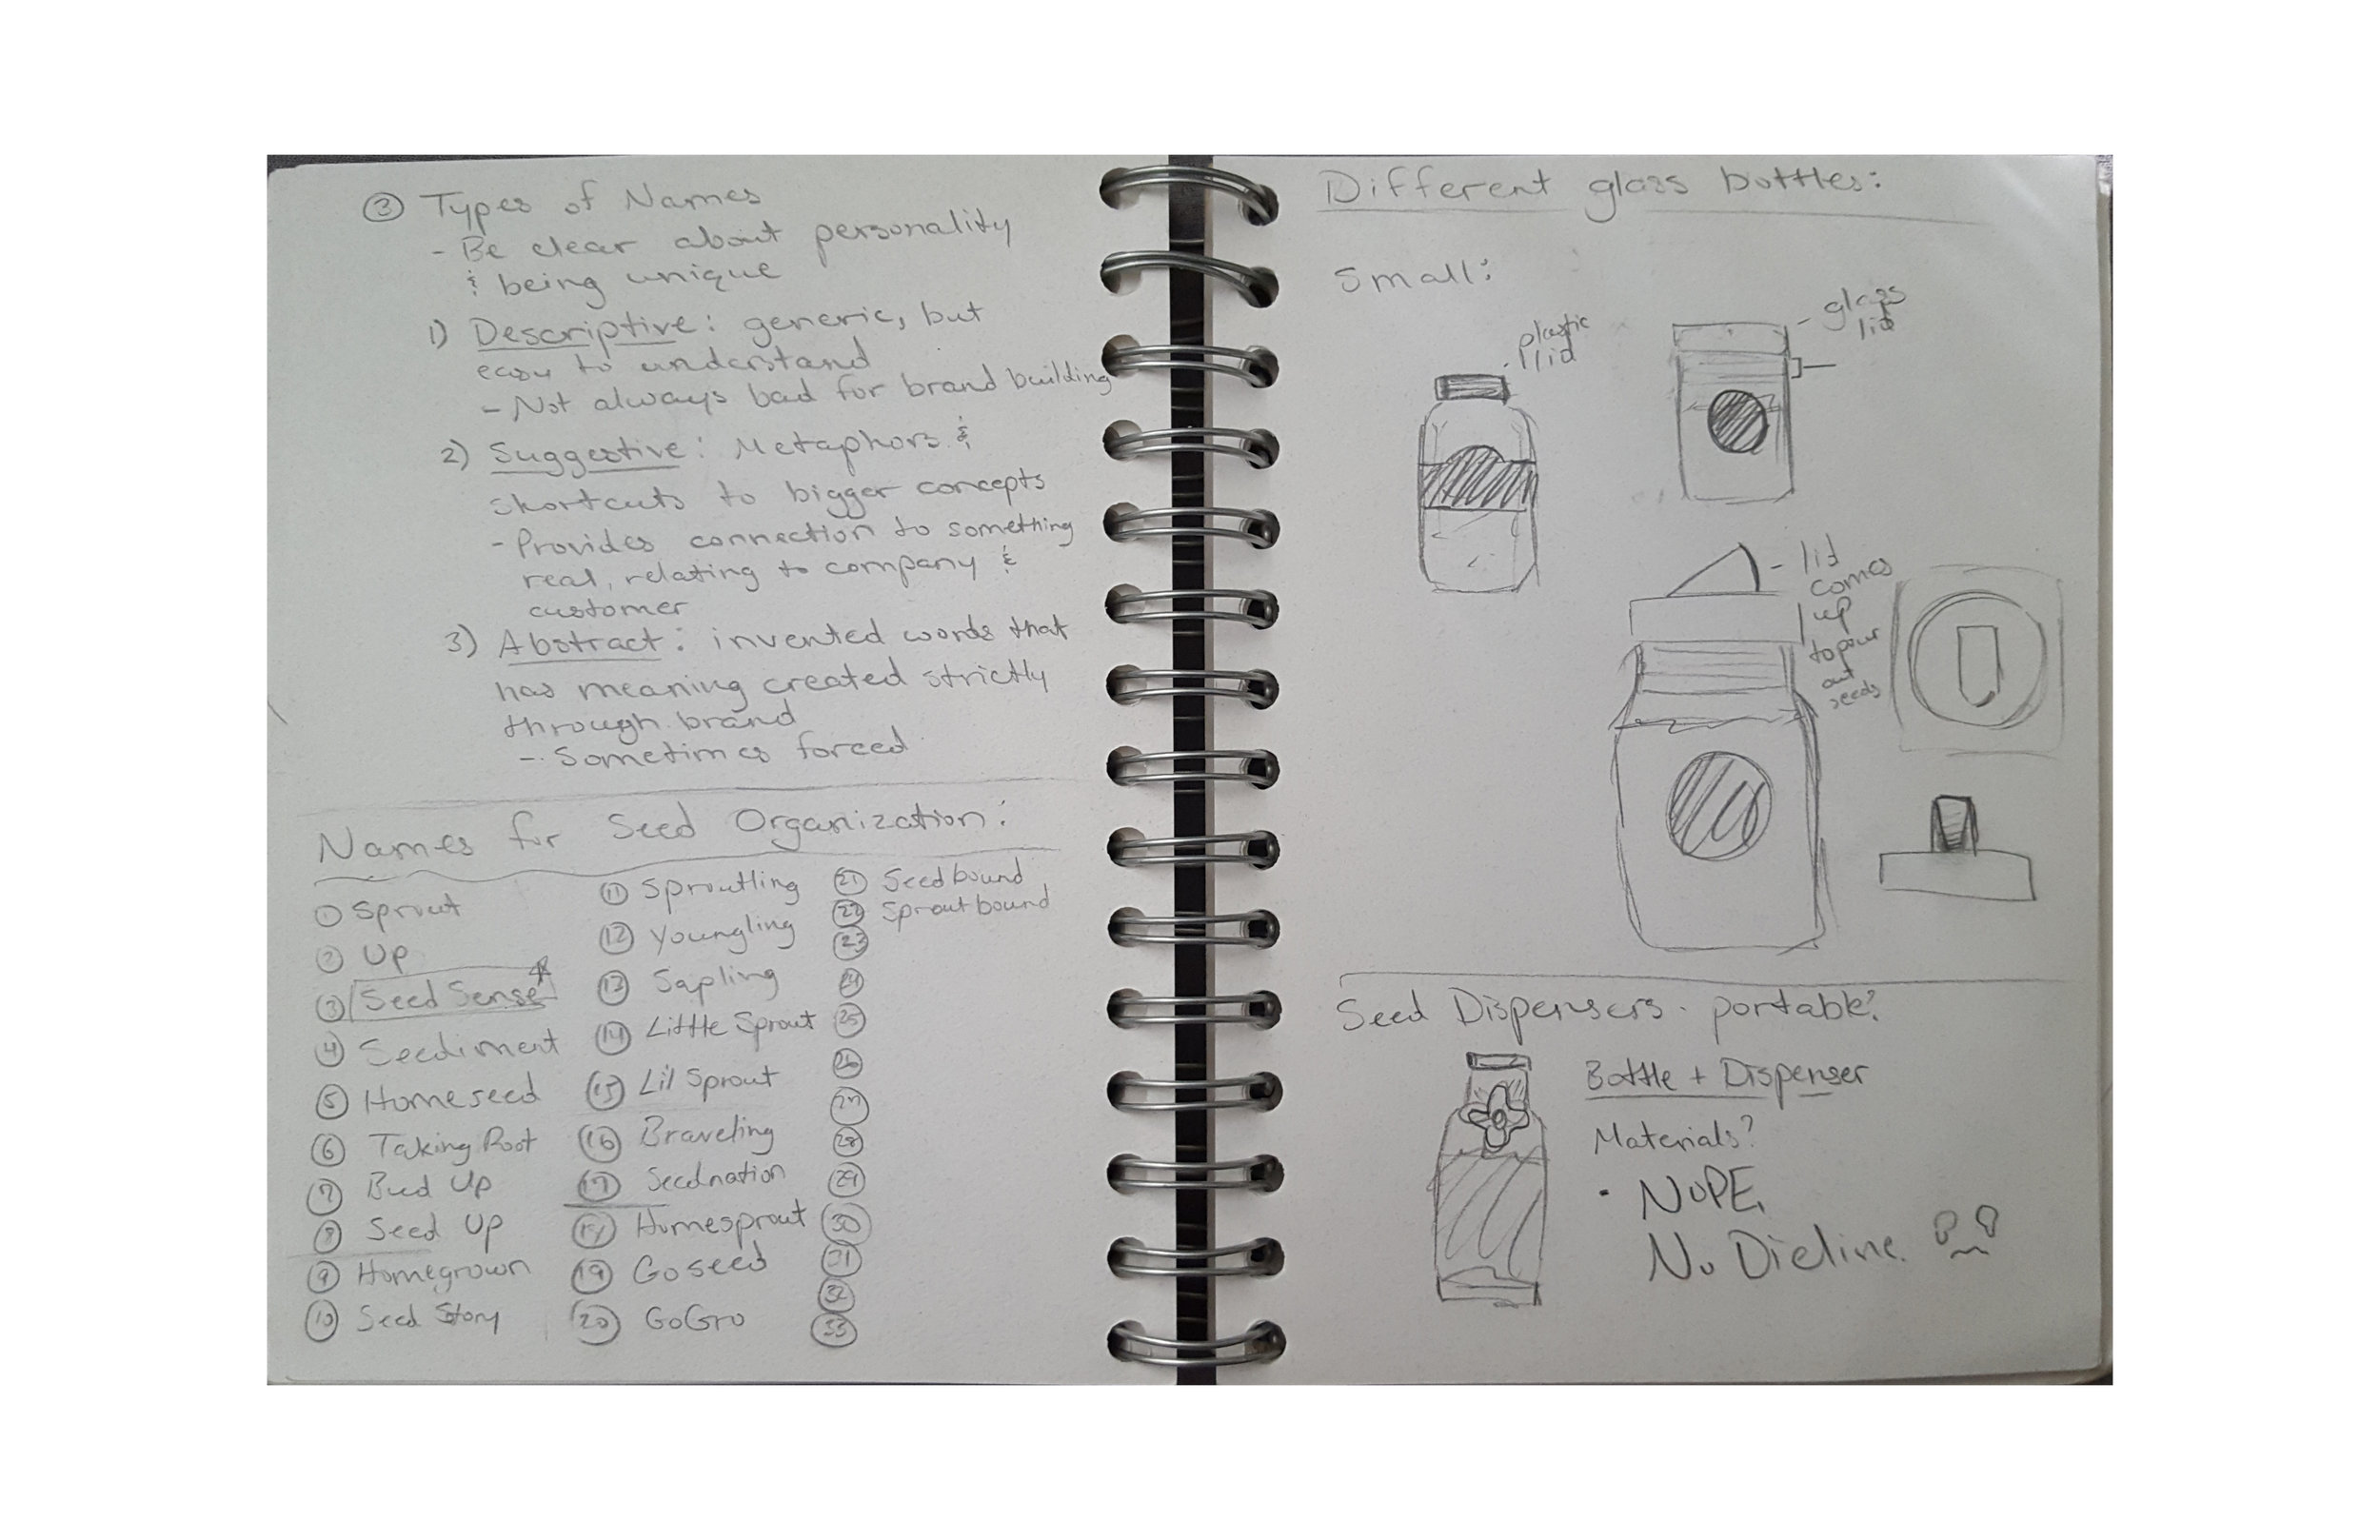 ③ Types of Names
- Be clear about personality
& being unique
1) Descriptive: generic, but
easy to understand
- Not always bad for brand building
2) Suggestive: Metaphors &
shortcuts to bigger concepts
- Provides connection to something
real, relating to company &
customer
3) Abstract: invented words that
has meaning created strictly
through brand
- Sometimes forced
Names for Seed Organization:
① Sprout
② Up
③ Seed Sense
④ Seediment
⑤ Homeseed
⑥ Taking Root
⑦ Bud Up
⑧ Seed Up
⑨ Homegrown
⑩ Seed Story
⑪ Sproutling
⑫ Youngling
⑬ Sapling
⑭ Little Sprout
⑮ Lil Sprout
⑯ Braveling
⑰ Seednation
⑱ Homesprout
⑲ Goseed
⑳ GoGro
㉑ Seedbound
㉒ Sproutbound
㉓
㉔
㉕
㉖
㉗
㉘
㉙
㉚
㉛
㉜
㉝
Different glass bottles:
Small:
- plastic
lid
- glass
lid
- lid
comes
up
to pour
out
seeds
Seed Dispensers - portable?
Bottle + Dispenser
Materials?
• NOPE,
No Dieline.